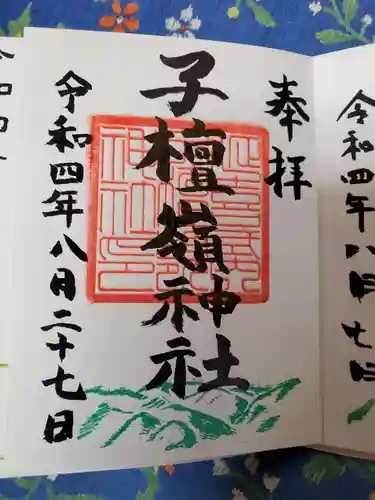 奉拝
子檀嶺神社
令和四年八月二十七日
令和四年八月七日